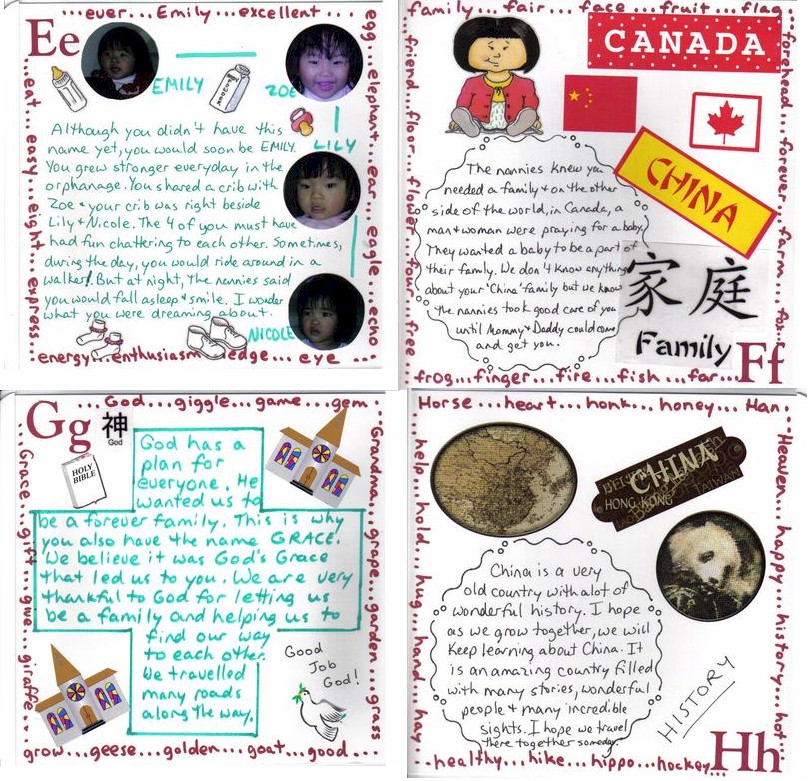 ...ever... Emily... excellent...
egg... elephant... ear... eagle... echo
Ee
...eat... easy... eight... express...
energy...enthusiasm...edge... eye...
EMILY
ZOE
LILY
NICOLE
Although you didn't have this
name yet, you would soon be EMILY.
You grew stronger everyday in the
orphanage. You shared a crib with
Zoe & your crib was right beside
Lily & Nicole. The 4 of you must have
had fun chattering to each other. Sometimes,
during the day, you would ride around in a
walker! But at night, the nannies said
you would fall asleep & smile. I wonder
what you were dreaming about.
family... fair... face... fruit... flag
forehead... forever... farm... fox...
...friend... floor... flower... four... free
frog...finger...fire...fish...far...
CANADA
CHINA
The nannies knew you
needed a family & on the other
side of the world, in Canada, a
man & woman were praying for a baby.
They wanted a baby to be a part of
their family. We don't know anything
about your 'China' family but we know
the nannies took good care of you
until Mommy & Daddy could come
and get you.
家庭
Family
Ff
Gg
神
God
God...giggle...game...gem
Grandma...grape...garden...grass
Grace...gift...give...giraffe...
grow...geese...golden...goat...good...
HOLY
BIBLE
God has a
plan for
everyone. He
wanted us to
be a forever family. This is why
you also have the name GRACE.
We believe it was God's Grace
that led us to you. We are very
thankful to God for letting us
be a family and helping us to
find our way
to each other.
We travelled
many roads
along the way.
Good
Job
God!
Horse...heart...honk...honey...Han.
Heaven...happy...history...hot..
...help...hold...hug...hand...hay
...healthy...hike...hippo...hockey
CHINA
HONG KONG
TAIWAN
China is a very
old country with alot of
wonderful history. I hope
as we grow together, we will
Keep learning about China. It
is an amazing country filled
with many stories, wonderful
people & many incredible
sights. I hope we travel
there together someday.
HISTORY
Hh